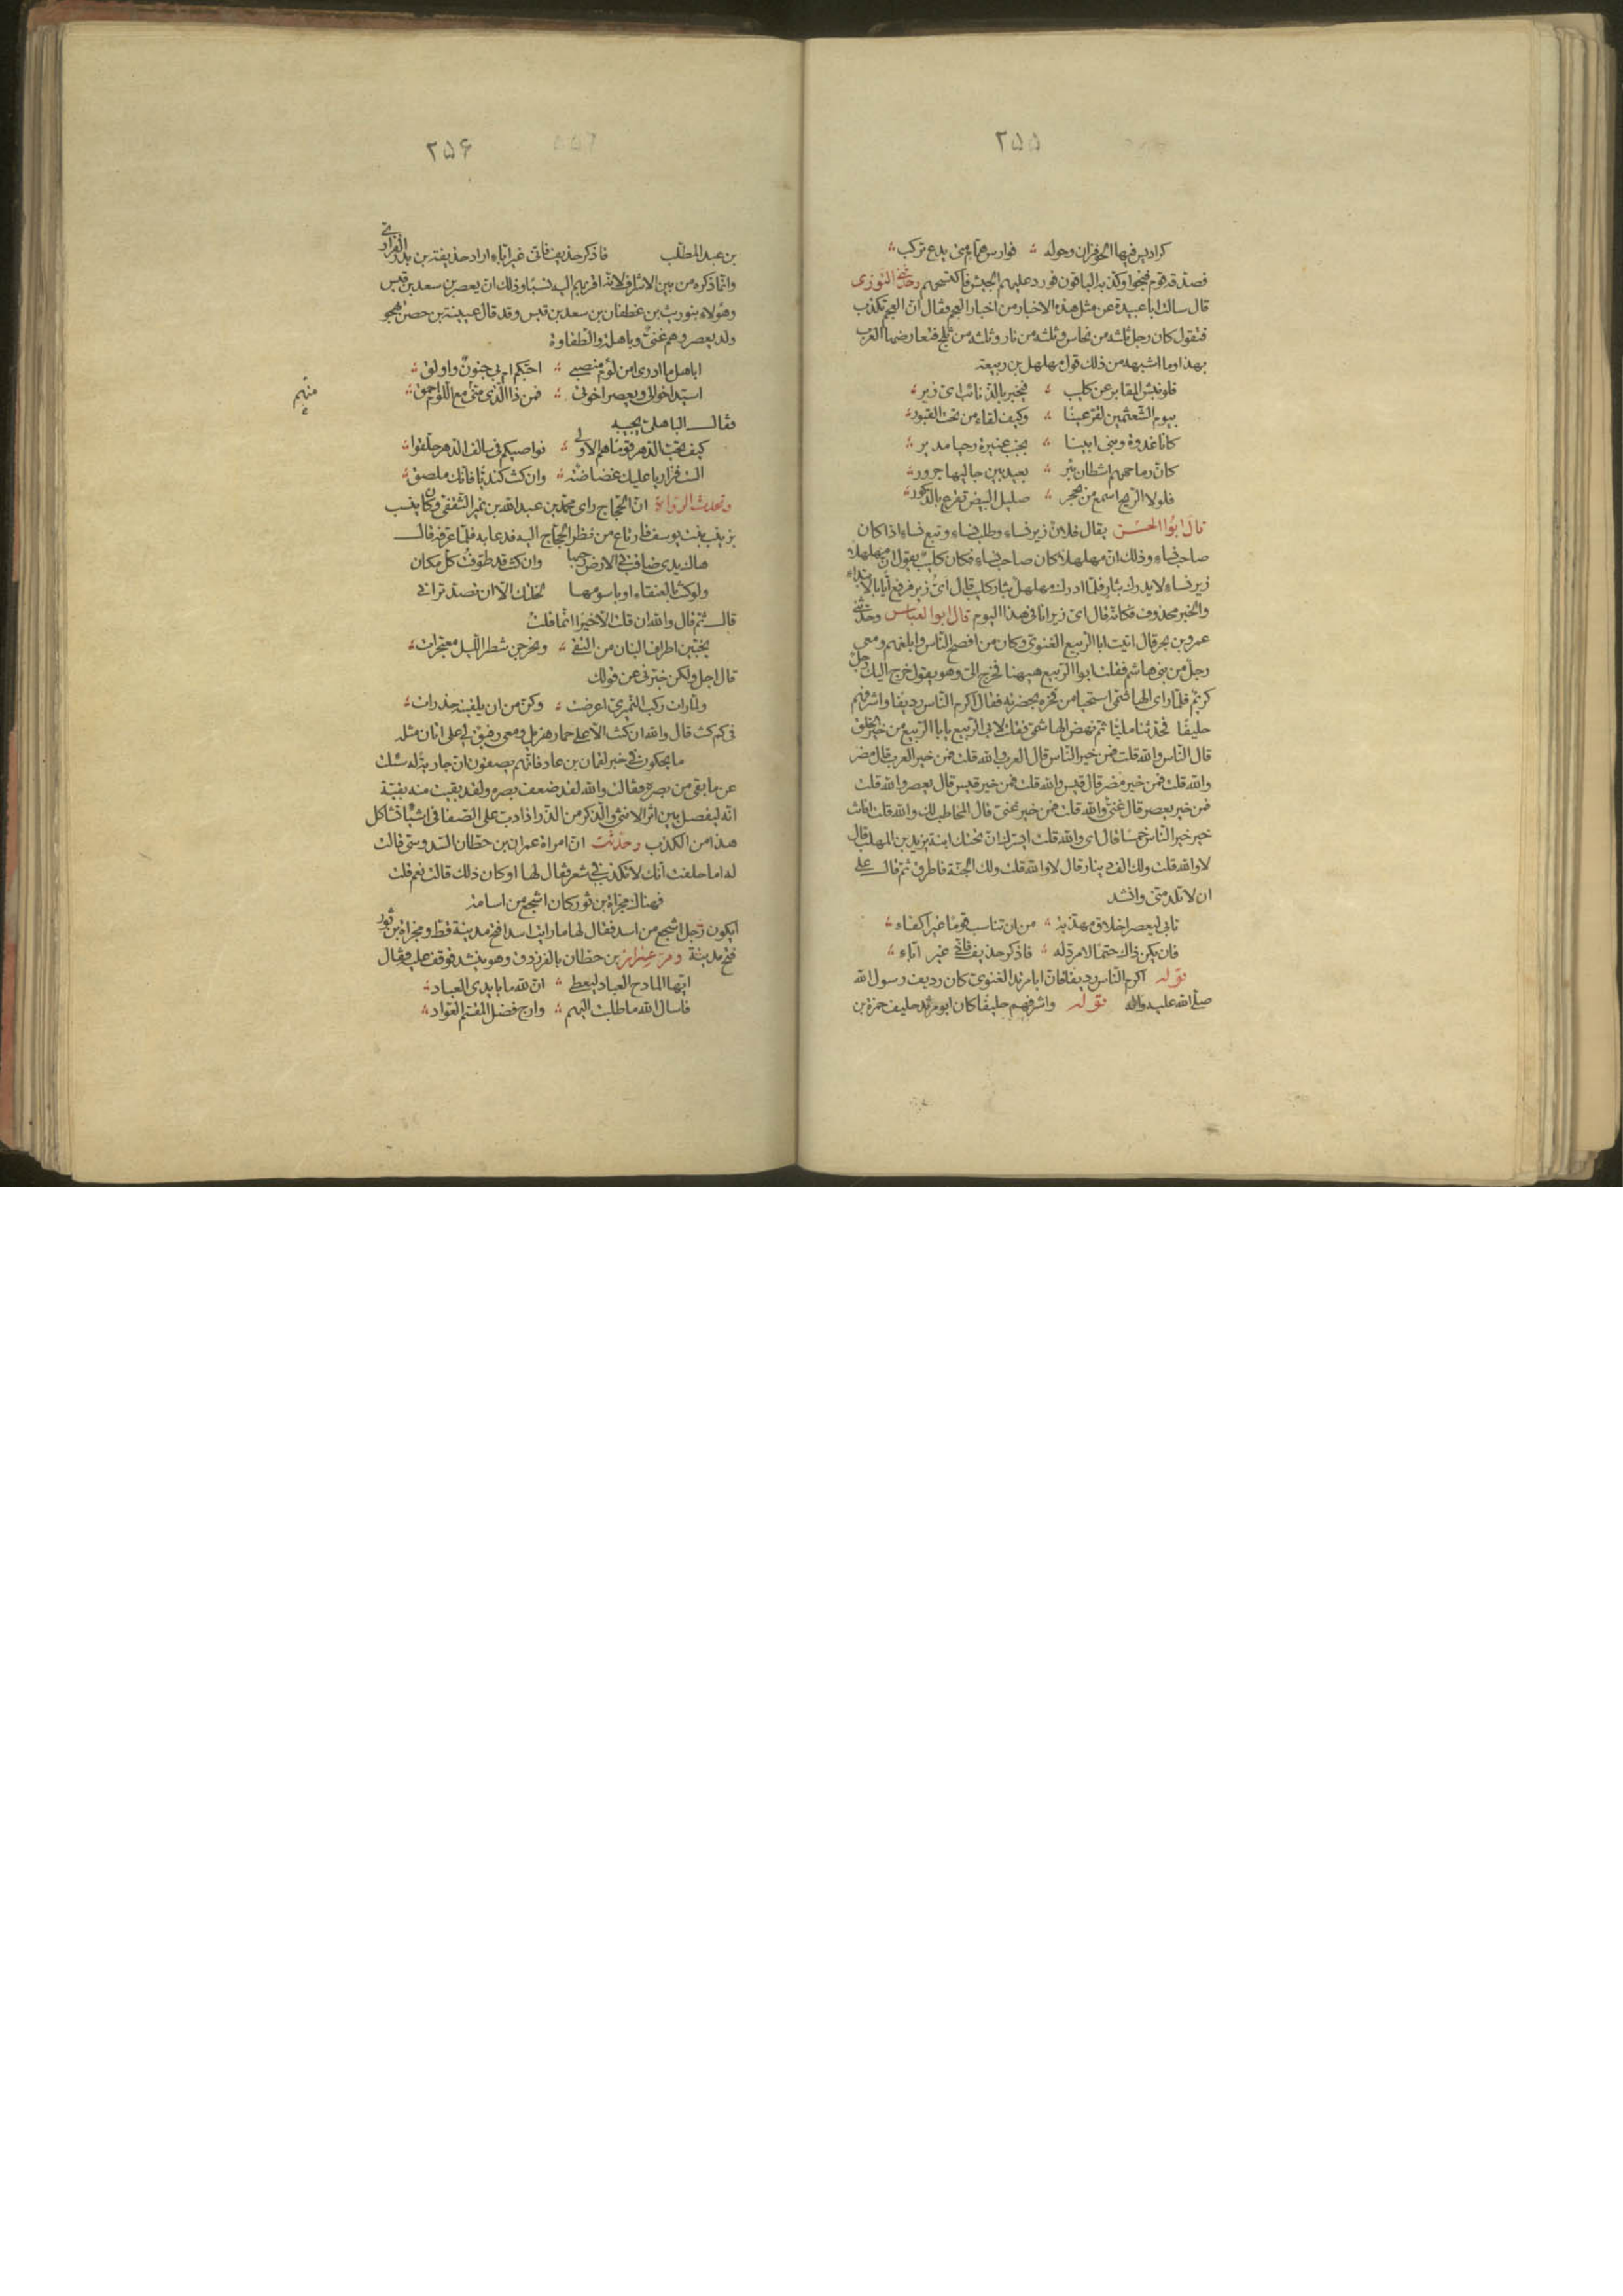 ٢۵۵
كراديس فيها الحوفزان وحوله فوارس همام متى يدع تركب
فصدقه قوم فنجوا وكذبه الباقون فورد عليهم الجيش فاكتسحهم وحدثنى التوزى
قال سالت ابا عبيدة عن مثل هذه الاخبار من اخبار العجم فقال ان العجم تكذب
فتقول كان رجل ثلثه من نحاس وثلثه من نار وثلثه من ثلج فتعارضها العرب
بهذا وما اشبهه من ذلك قول مهلهل بن ربيعة
فلو نبش المقابر عن كليب فيخبر بالذنائب اى زير
بيوم الشعثمين لقر عينا وكيف لقاء من تحت القبور
كانا غدوة وبنى ابينا بجنب عنيزة رحيا مدير
كان رماحهم اشطان بئر بعيد بين جاليها جرور
فلولا الريح اسمع من بحجر صليل البيض تقرع بالذكور
قال ابوا الحسن يقال فلان زير نساء وطلب نساء وتبع نساء اذا كان
صاحب نساء وذلك ان مهلهلا كان صاحب نساء فكان كليب يقول ان مهلهلا
زير نساء لا يدرك بثار فلما ادرك مهلهل بثار كليب قال اى زير فرفع ايا بالابتداء
والخبر محذوف فكانه قال اى زير انا فى هذا اليوم قال ابو العباس وحدثنى
عمرو بن بحر قال اتيت ابا الربيع الغنوى وكان من افصح الناس وابلغهم ومعى
رجل من بنى هاشم فقلت ابوا الربيع هيهنا فخرج الى وهو يقول خرج اليك رجل
كريم فلما راى الهاشمى استحيا من فخره بحضرته فقال اكرم الناس رديفا واشرفهم
حليفا فتحدثنا مليا ثم نهض الهاشمى فقلت لابى الربيع يا با الربيع من خير الخلق
قال الناس والله قلت فمن خير الناس قال العرب والله قلت فمن خير العرب قال مضر
والله قلت فمن خير مضر قال قيس والله قلت فمن خير قيس قال يعصر والله قلت
فمن خير يعصر قال غنى والله قلت فمن خير غنى قال المخاطب لك والله قلت افانت
خير خير الناس خمسا قال اى والله قلت ايسرك ان تحتك ابنة يزيد بن المهلب قال
لا والله قلت ولك الف دينار قال لا والله قلت ولك الجنة فاطرق ثم قال على
ان لا تلد منى وانشد
تابى ليعصر اخلاق مهذبة من ان تناسب قوما غير اكفاء
فان يكن ذاك حتما لا مرد له فاذكر حذيف فانى غير اباء
قوله اكرم الناس رديفا فان ابا مرثد الغنوى كان رديف رسول الله
صلى الله عليه واله قوله واشرفهم حليفا كان ابو مرثد حليف حمزة بن
٢۵۶
بن عبد المطلب فاذكر حذيف فانى غير اباء اراد حذيفة بن بدر الفزارى
وانما ذكره من بين الاشراف لانه اقربهم اليه نسبا وذلك ان يعصر بن سعد بن قيس
وهؤلاء بنو ريث بن غطفان بن سعد بن قيس وقد قال عيينة بن حصن يهجو
ولد يعصر وهم غنى وباهلة والطفاوة
اباهل ما ادرى امن لؤم منصبى احبكم ام بى جنون واولق
اسيد اخوالى ويعصر اخوتى فمن ذا الذى منى مع اللؤم احمق
منهم
فقال الباهلى يجيبه
كيف تحب الدهر قوما هم الاولى نواصيكم فى سالف الدهر حلقوا
الست فزاريا عليك غضاضة وان كنت كنديا فانك ملصق
وتحدث الرواة ان الحجاج راى محمد بن عبد الله بن نمير الثقفى وكان ينسب
بزينب بنت يوسف فارتاع من نظر الحجاج اليه فدعا به فلما عرفه قال
هاك يدى ضاقت بى الارض رحبها وان كنت قد طوفت كل مكان
ولو كنت بالعنقاء او باسومها لخلتك الا ان تصد ترانى
قال ثم قال والله ان قلت الا خيرا انما قلت
يخبئن اطراف البنان من التقى ويخرجن شطر الليل معتجرات
قال اجل ولكن خبرنى عن قولك
ولما رات ركب النميرى اعرضت وكن من ان يلقينه حذرات
فى كم كنت قال والله ان كنت الا على حمار هزيل ومعى رفيق لى على اتان مثله
ما يحكون فى خبر لقمان بن عاد فانهم يصفون ان جارية له سئلت
عن ما بقى من بصره فقالت والله لقد ضعف بصره ولقد بقيت منه بقية
انه ليفصل بين اثر الانثى والذكر من الذر اذا دب على الصفا فى اشياء تشاكل
هذا من الكذب وحدثت ان امراة عمران بن حطان السدوسى قالت
له اما حلفت انك لا تكذب فى شعر فقال لها او كان ذلك قالت نعم قلت
فهناك مجزاة بن ثور كان اشجع من اسامة
ايكون رجل اشجع من اسد فقال لها ما رايت اسدا فتح مدينة قط ومجزاة بن ثور
فتح مدينة ومر عمران بن حطان بالفرزدق وهو ينشد فوقف عليه فقال
ايها المادح العباد ليعطى ان لله ما بايدى العباد
فاسال الله ما طلبت اليهم وارج فضل المقسم العواد